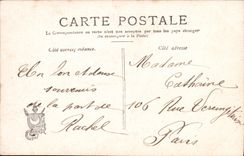 CARTE POSTALE
La Correspondance au recto n'est pas acceptée par tous les pays étrangers
(Se renseigner à la Poste)
Côté correspondance.
Côté adresse
Un bon et doux
souvenir
de la part de
Rachel
Madame
Catherine
106 Rue
Paris